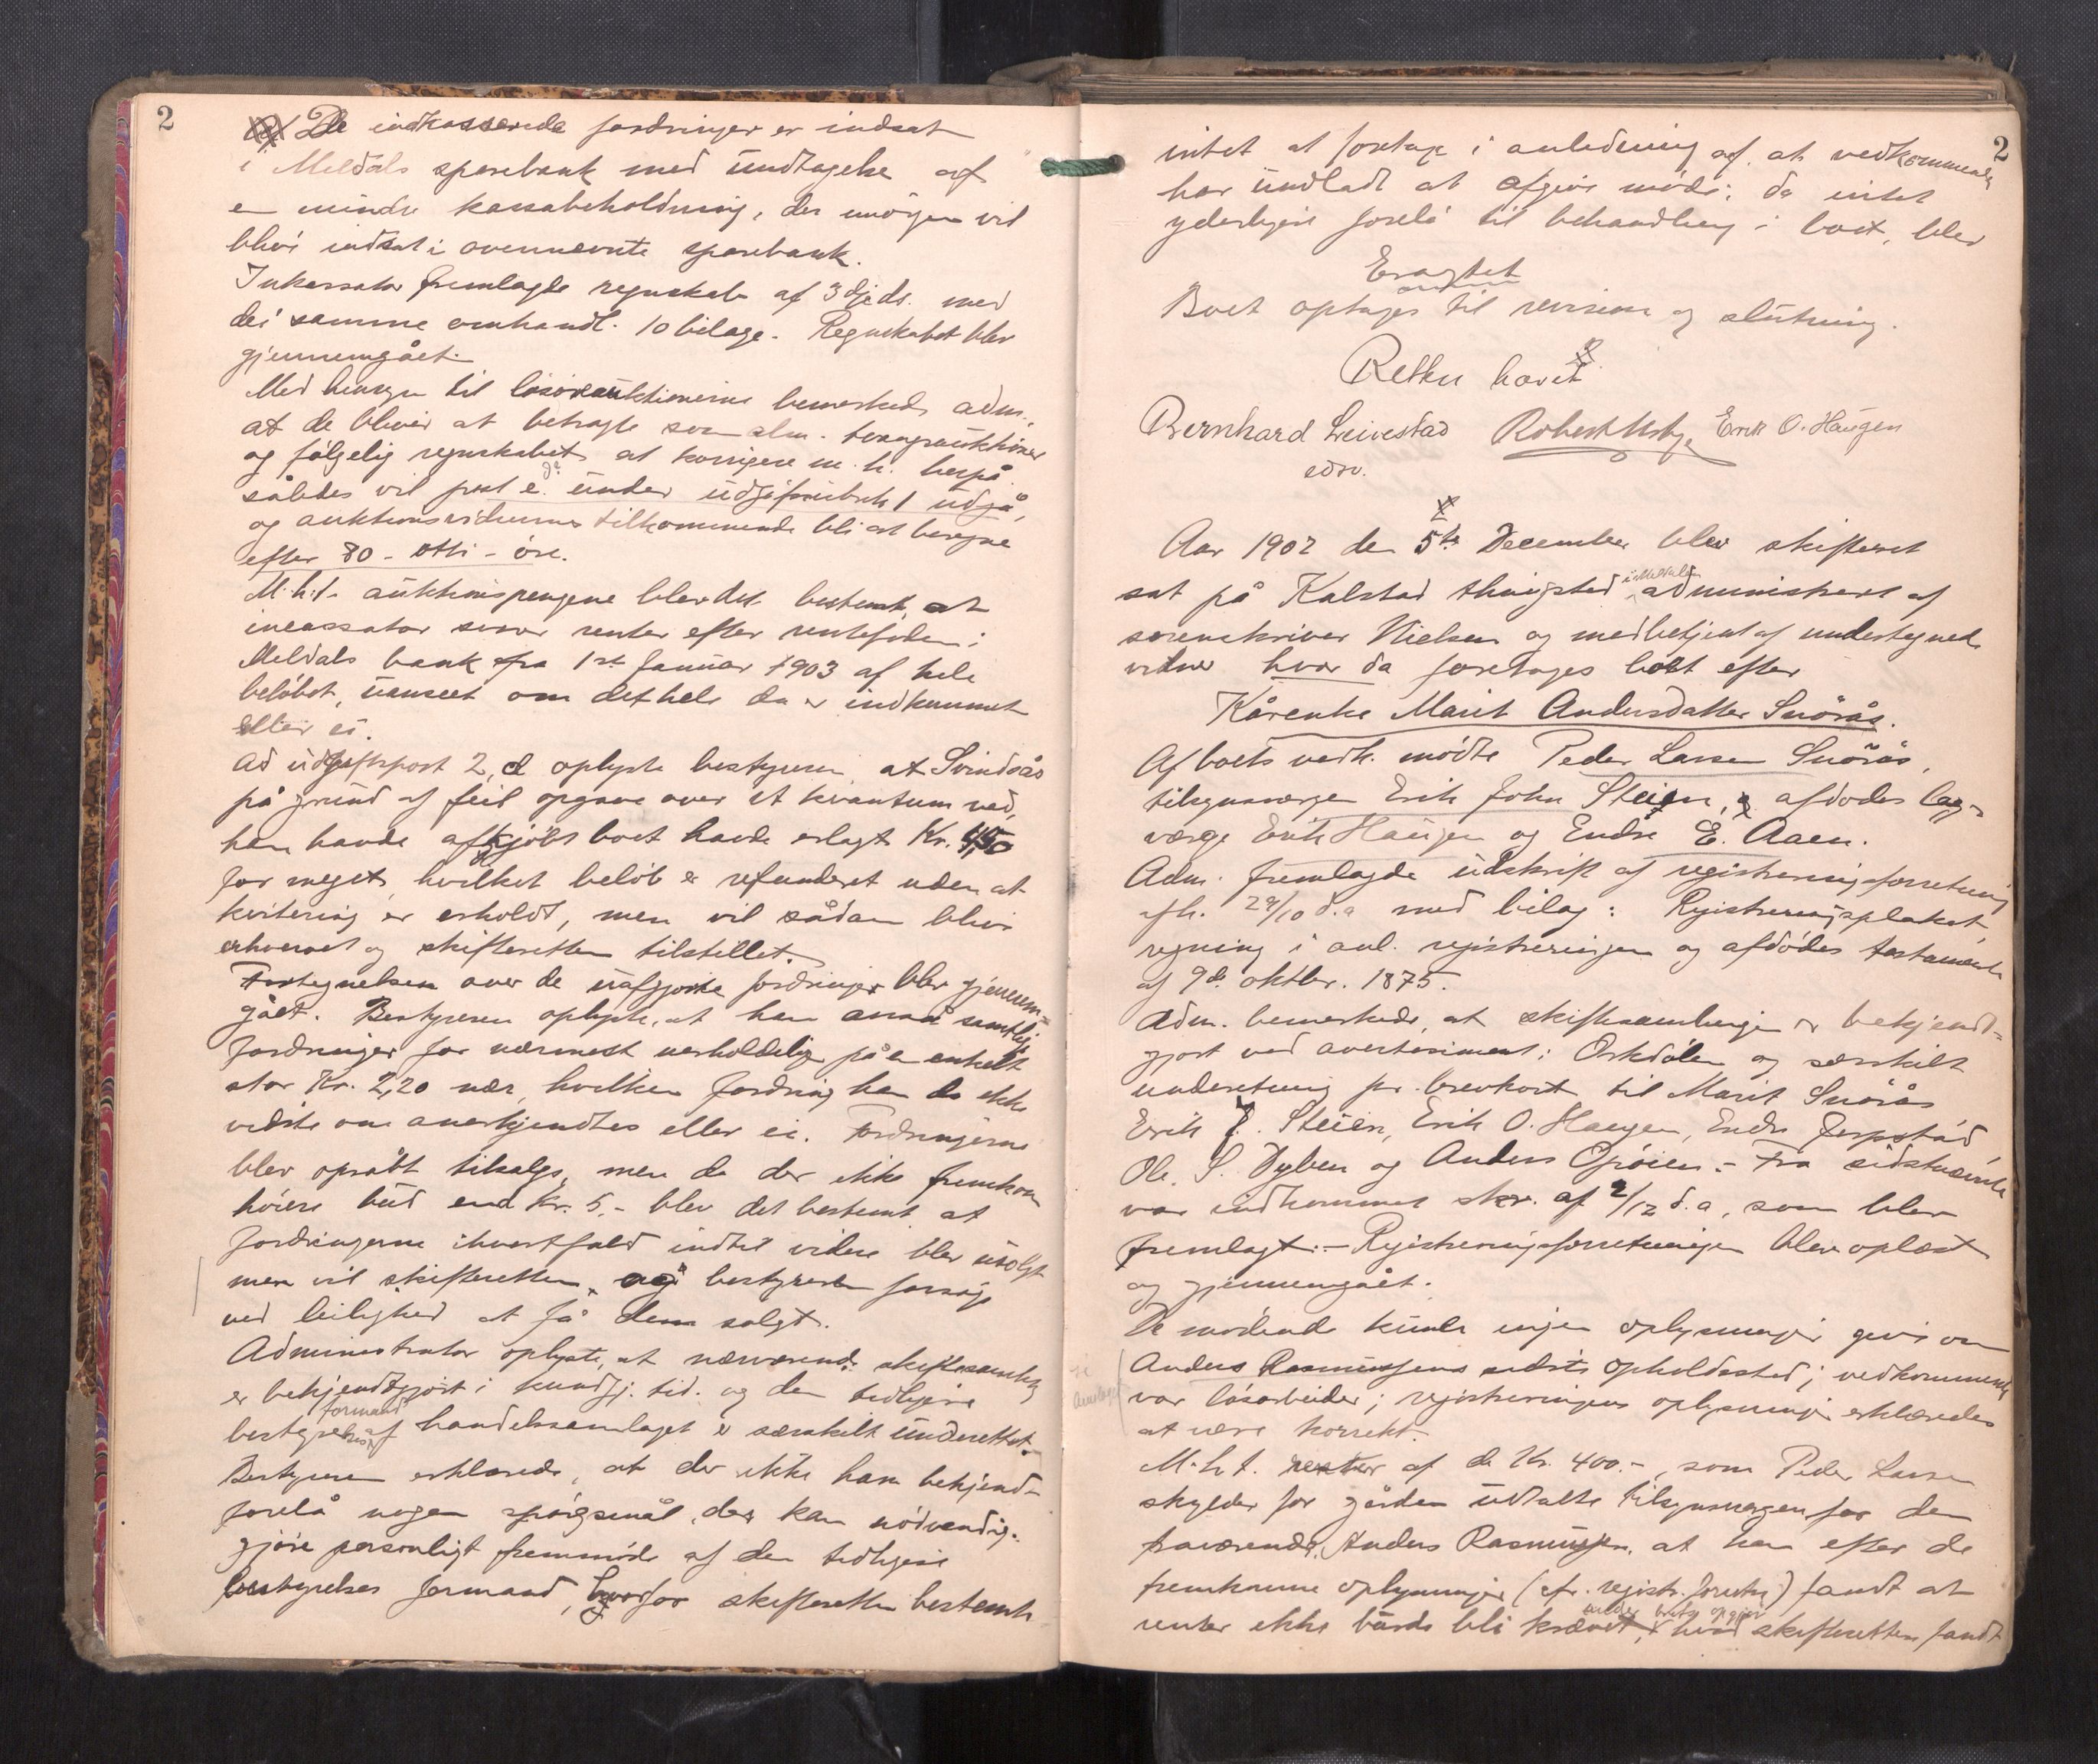 2
De indkasserede fordringer er indsat
i Meldals sparebank med undtagelse af
en mindre kassabeholdning, der imorgen vil
blive indsat i ovennævnte sparebank.
Inkassator fremlagde regnskab af 3dje ds. med
de i samme omhandl. 10 bilage. Regnskabet blev
gjennemgået.
Med hensyn til løsøreauktionerne bemærkede adm.
at de bliver at betragte som alm. tvangsauktioner
og følgelig regnskabet at korrigere m. h. herpå.
således vil post e. under udgiftsrubrik 1 udgå,
og auktionsvidnernes tilkommende bli at beregne
efter 80 - otti - øre.
M.h.t. auktionspengene blev det bestemt, at
incassator svarer renter efter rentefoden i
Meldals bank fra 1ste Januar 1903 af hele
beløbet, uanseet om det hele da er indkommet
eller ei.
Ad udgiftspost 2, d oplyste bestyreren, at Svindsås
på grund af feil opgave over et kvantum ved,
han havde afkjøbt boet havde erlagt Kr. 4,50
for meget, hvilket beløb er refunderet uden at
kvitering er erholdt, men vil sådan blive
erhvervet og skifteretten tilstillet.
Fortegnelsen over de uafgjorte fordringer blev gjennem=
gået. Bestyreren oplyste, at han anså samtlige
fordringer for nærmest uerholdelige på en enkelt
stor Kr. 2,20 nær, hvilken fordring han do ikke
vidste om anerkjendtes eller ei. Fordringerne
blev opråbt tilsalgs, men da der ikke fremkom
høiere bud end Kr. 5,- blev det bestemt at
fordringerne ihvertfald indtil videre blev usolgt
men vil skifteretten og bestyreren forsøge
ved leilighed at få dem solgt.
Administrator oplyste, at nærværende skiftesamling
er bekjendtgjort i kundgj. tid. og den tidligere
formand
bestyrelses af handelssamlaget er særskilt underrettet.
Bestyreren erklærede, at der ikke ham bekjendt
forelå nogen spørgsmål, der kan nødvendig-
gjøre personligt fremmøde af den tidligere
bestyrelses formand, hvorfor skifteretten bestemte
2
intet at foretage i anledning af at vedkommende
har undladt at afgive møde; da intet
yderligere forelå til behandling i boet, blev
Eragtet
Boet optages til revision og slutning.
Retten hævet
Bernhard Leivestad Robert Erik O. Haugen
edsv.
Aar 1902 den 5te December blev skifteret
sat på Kalstad thingsted i Meldalen administreret af
sorenskriver Nielsen og medbetjent af undertegnede
vidner hvor da foretages boet efter
Kårenke Marit Andersdatter Snörås.
Af boets vedk. mødte Peder Larsen Snörås,
tilsynsværge Erik John Steien, afdødes lag=
værge Erik Haugen og Endre E. Aaen.
Adm. fremlagde udskrift af registreringsforretning
afh. 29/10 d.a. med bilag: Registreringsplakat,
regning i anl. registreringen og afdødes testamente
af 9de oktbr. 1875.
Adm. bemærkede, at skiftesamlingen er bekjendt=
gjort ved avertissment i Orkdølen og særskilt
underretning pr. brevkort til Marit Snörås
Erik J. Steien, Erik O. Haugen, Endre Jerpstad
Ole S. Dyben og Anders Opöien. - Fra sidstnævnte
var indkommet skr. af 2/12 d.a., som blev
fremlagt. - Registreringsforretningen blev oplæst
og gjennemgået.
De mødende kunde ingen oplysninger give om
Anders Rasmussens sidste opholdssted; vedkommende
var løsarbeider; registreringens oplysninger erklæredes
at være korrekt.
M.h.t. renter af de Kr. 400.-, som Peder Larsen
skylder for gården udtalte tilsynsværgen for den
fraværende, Anders Rasmussen, at han efter de
fremkomne oplysninger (cfr. registr. forretn) fandt at
under boets opgjør
renter ikke burde bli krævet, hvad skifteretten fandt